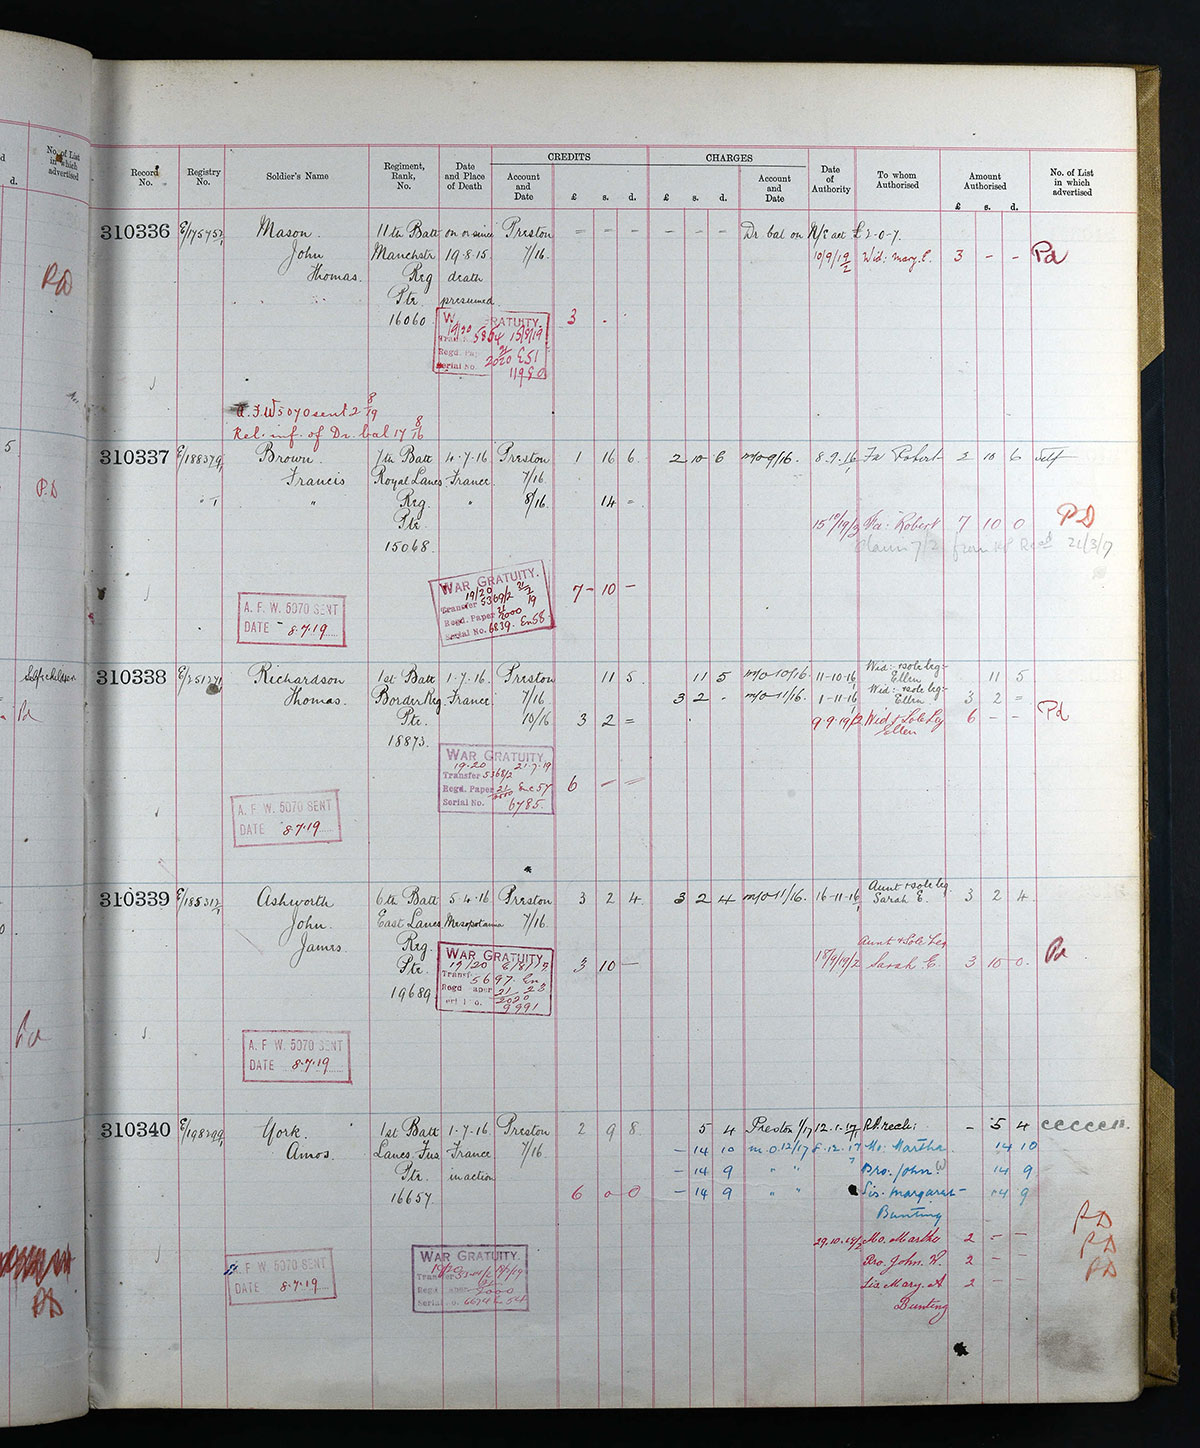 No. of List
in which
advertised
d.
PD
5
P.D
Pd
Pd
PD
CREDITS
CHARGES
Record No.
Registry No.
Soldier's Name
Regiment, Rank, No.
Date and Place of Death
Account and Date
£ s. d.
£ s. d.
Account and Date
Date of Authority
To whom Authorised
Amount Authorised
£ s. d.
No. of List in which advertised
310336 E/175757/1 Mason. 11th Batt on or since Preston Dr bal on A/c act £2-0-7.
John Manchstr 19.8.15 7/16. 10/9/19/2 Wid: Mary E. 3 - - Pd
Thomas. Reg death
Pte presumed
16060 3 - -
W RATUITY.
19/20 5864 15/8/19
Regd. Pa 21/2020 E51
Serial No. 11980
A.F.W5070 sent 2 8/19
Rel. inf. of Dr. bal 17 8/16
310337 E/188379/1 Brown. 7th Batt 4.7.16 Preston 1 16 6 2 10 6 m/o 9/16. 8.9.16/1 Fa Robert 2 10 6 Self
Francis Royal Lancs France 7/16.
" Reg. " 8/16. 14 =
Pte
15068. 15/10/19/2 Fa: Robert 7 10 0 PD
21/3/17
WAR GRATUITY.
19/20 21/2/19
Transfer 5369/2
Regd. Paper 21/2000
Serial No. 6839. En58.
7 - 10 -
A. F. W. 5070 SENT
DATE - 8.7.19
310338 E/251271/1 Richardson 1st Batt 1.7.16. Preston 11 5 11 5 m/o 10/16. 11-10-16/1 Wid: & sole leg- Ellen 11 5
Thomas. Border Reg France 7/16. 3 2 - m/o 11/16. 1-11-16/1 Wid: & sole leg- Ellen 3 2 =
Pte. 10/16 3 2 = 9.9.19/2 Wid & Sole Leg Ellen 6 - - Pd
18873.
WAR GRATUITY
19.20 21.7.19
Transfer 5368/2
Regd. Paper 21/2000 Enc 57
Serial No. 6785.
6 - -
A. F. W. 5070 SENT
DATE 8.7.19
310339 E/185312/1 Ashworth 6th Batt 5.4.16 Preston 3 2 4 3 2 4 m/o 11/16. 16-11-16/1 Aunt & sole leg. Sarah E. 3 2 4.
John East Lancs Mesopotamia 7/16.
James Reg.
Pte
19689 3 10 - 18/9/19/2 Aunt & Sole Leg Sarah E. 3 10 0. Pd
WAR GRATUITY
19/20
Transf 5697
Regd aper 21/2020
9991
A. F. W. 5070 SENT
DATE 8.7.19
310340 E/198299/1 York. 1st Batt 1.7.16 Preston 2 9 8 5 4 Preston 1/17 12.1.17 - 5 4
Amos. Lancs Fus France 7/16. - 14 10 m.o 12/17 8.12.17 Mo: Martha. 14 10
Pte. in action - 14 9 " " Bro: John W 14 9
16657. 6 0 0 - 14 9 " " Sis. Margaret- 14 9
Bunting
Mo. Martha 2 - - PD
Bro. John. W. 2 - - PD
Sis Mary. A 2 - - PD
Bunting
A. F. W. 5070 SENT
DATE 8.7.19
WAR GRATUITY.
19/20